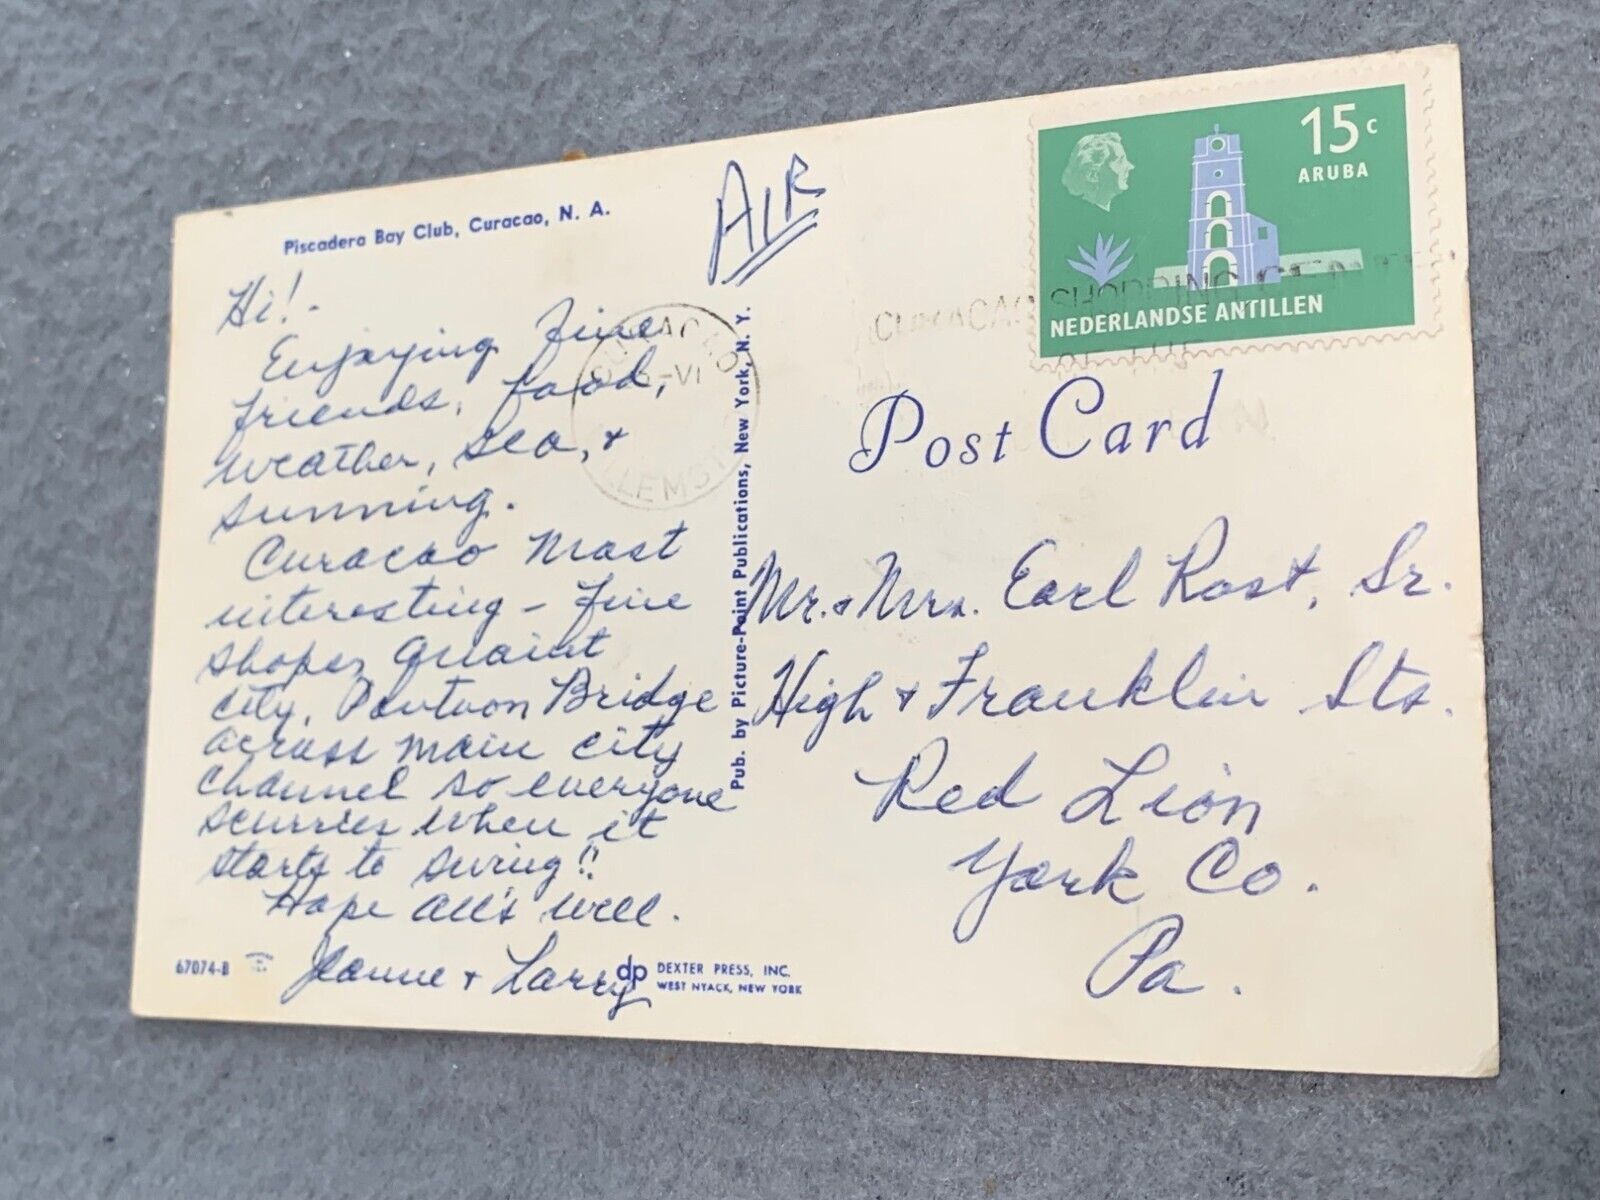 Piscadera Bay Club, Curacao, N. A.
AIR
Hi! -
Enjoying fine
friends, food,
weather, sea, &
sunning.
Curacao most
interesting - fine
shops, quaint
city, Pontoon Bridge
across main city
channel so everyone
scurries when it
starts to swing!!
Hope all's well.
Jeanne & Larry
67074-B
dp DEXTER PRESS, INC.
WEST NYACK, NEW YORK
Pub. by Picture-Point Publications, New York, N. Y.
15 c
ARUBA
NEDERLANDSE ANTILLEN
CURACAO SHOPPING CENTER
OF THE
Post Card
Mr. & Mrs. Earl Rost, Sr.
High & Franklin Sts.
Red Lion
York Co.
Pa.